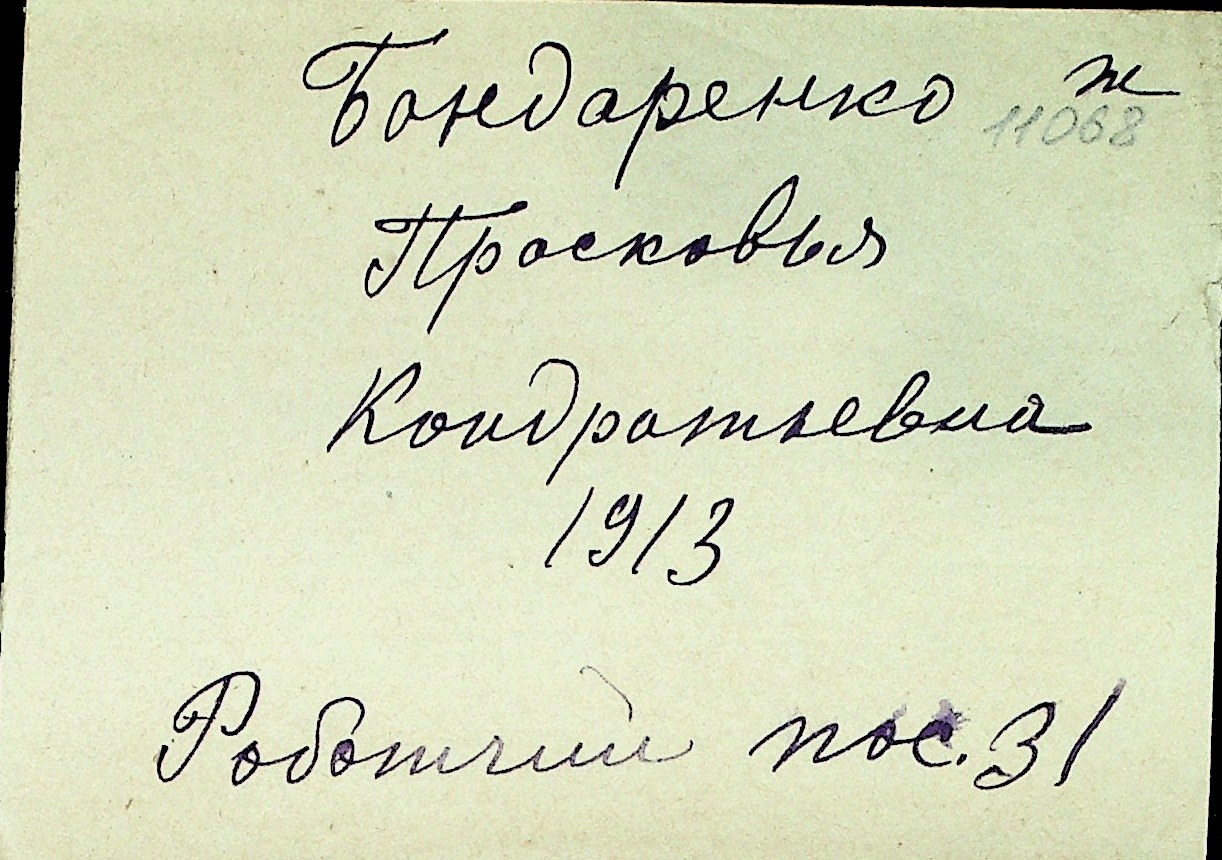 Бондаренко ж
11068
Просковья
Кондратьевна
1913
Работчий пос. 31